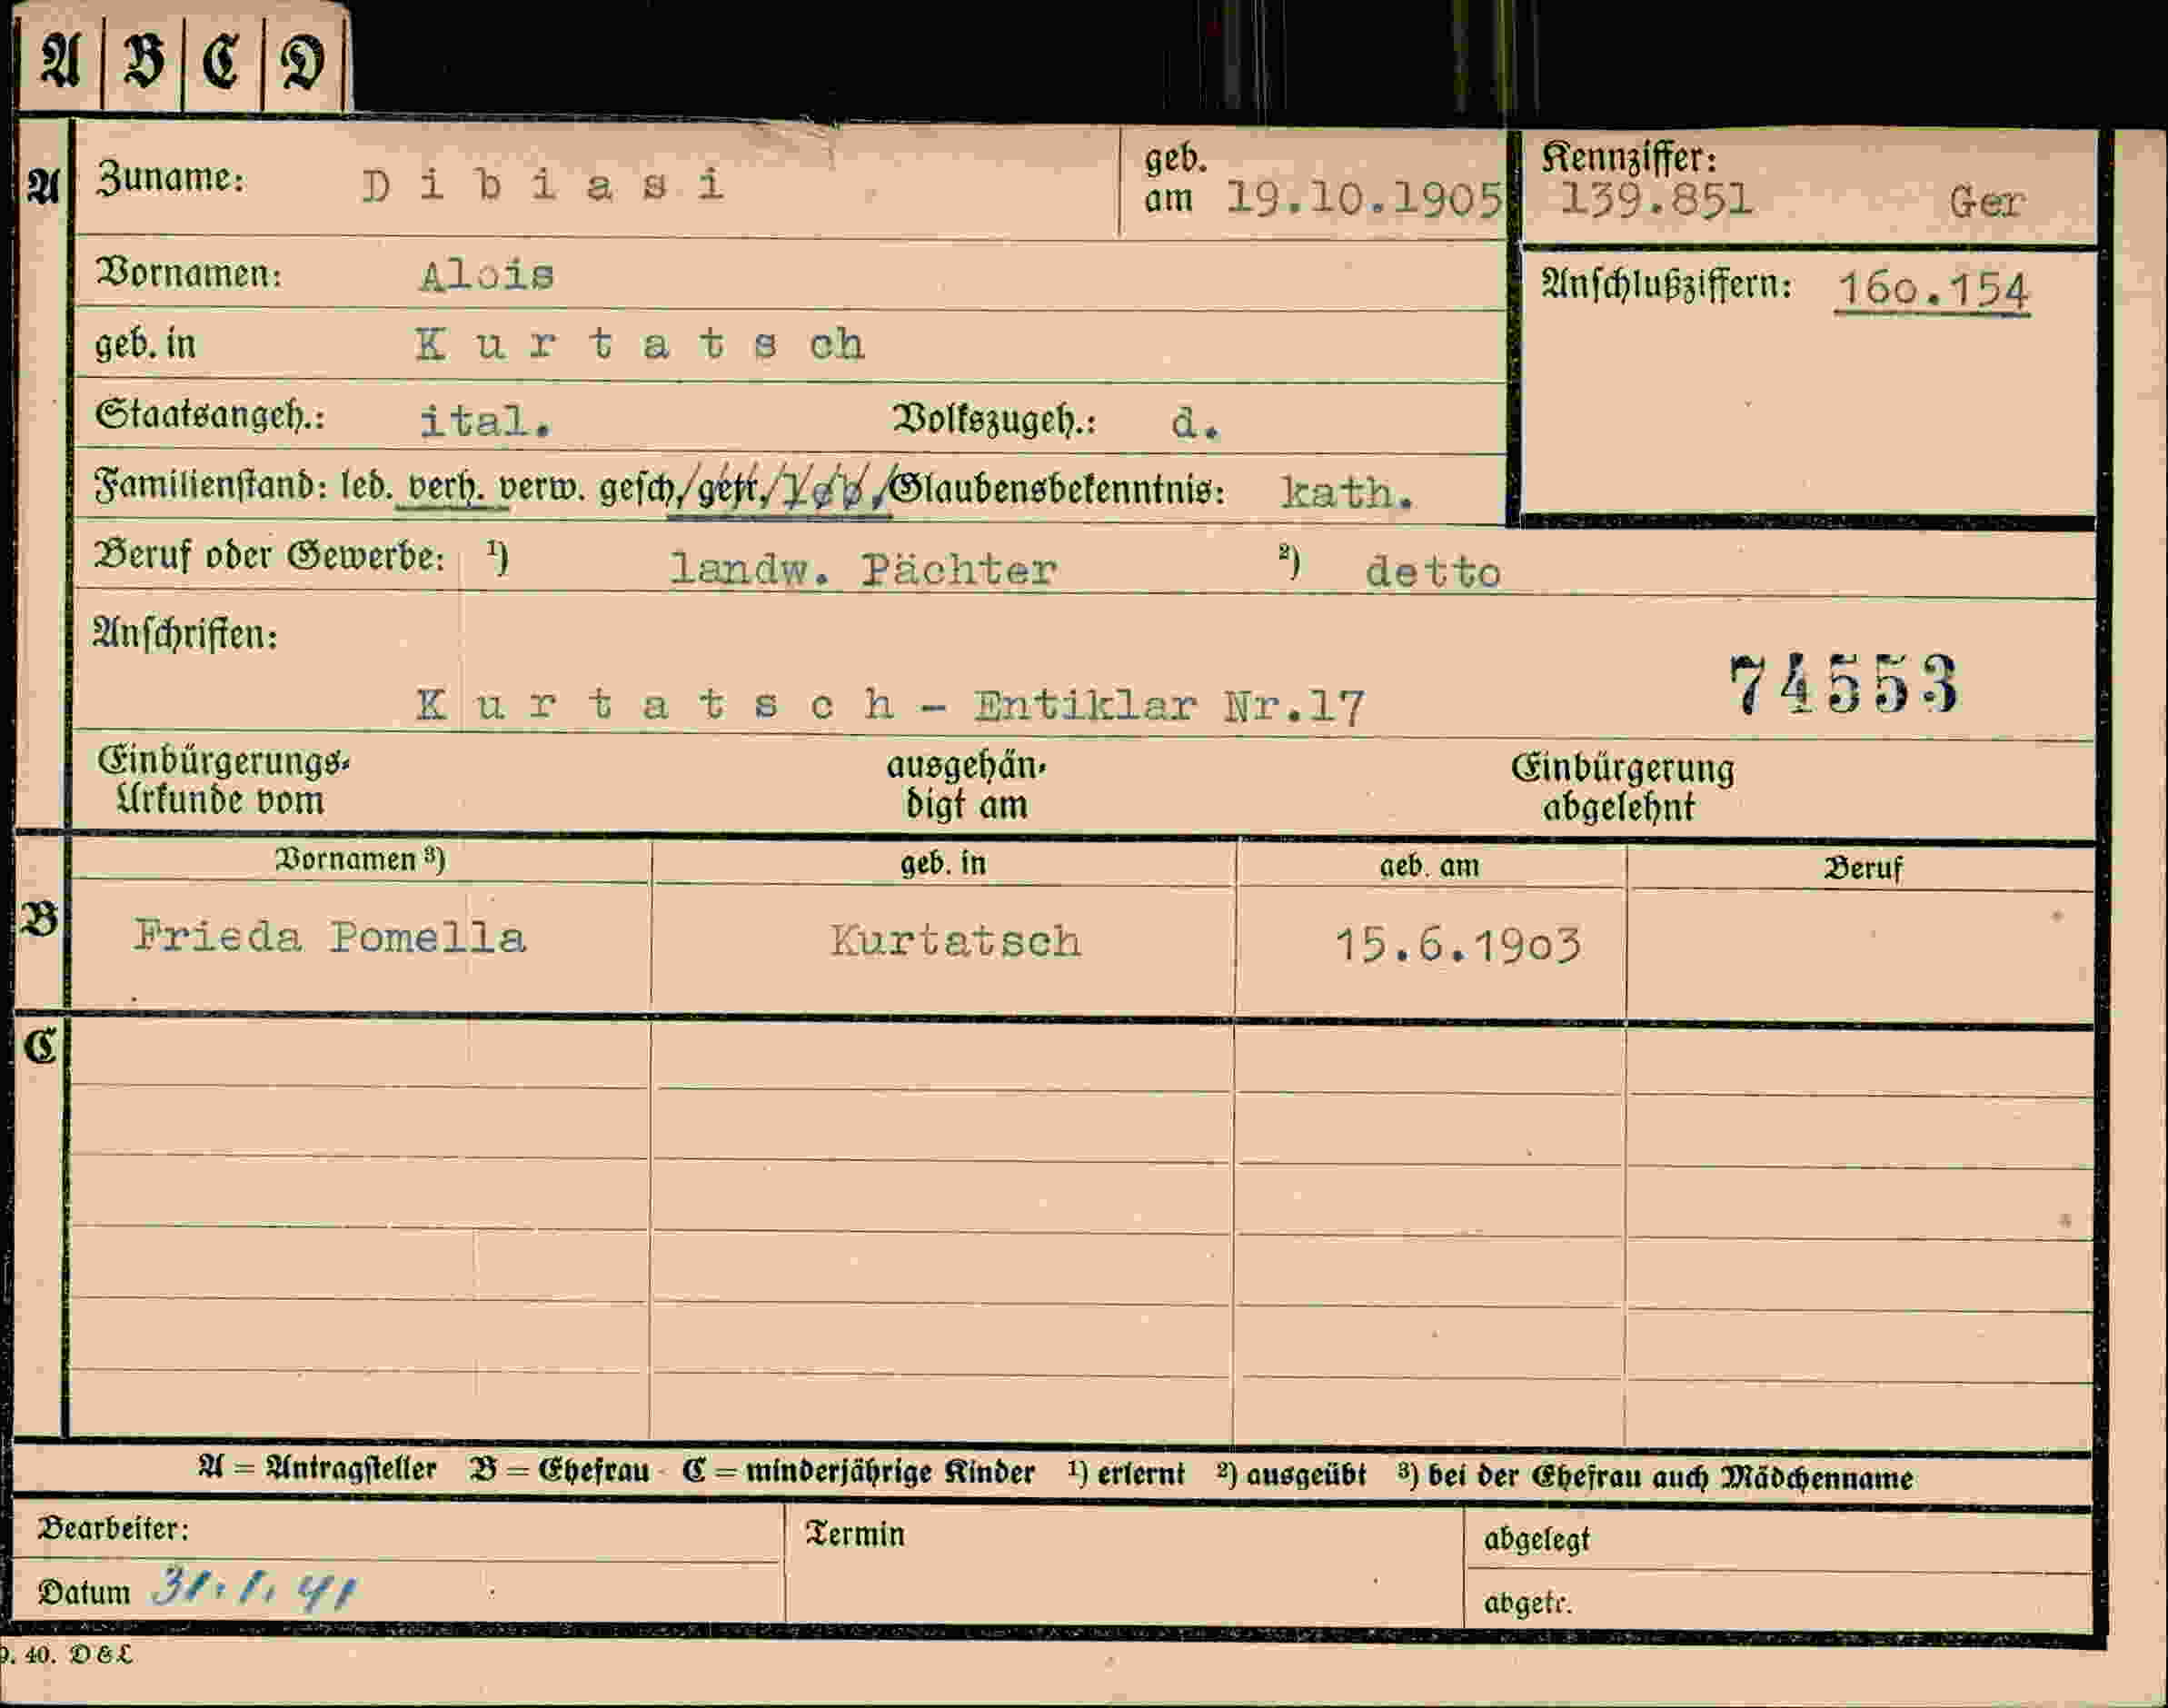 A B C D
A Zuname: Dibiasi geb. am 19.10.1905 Kennziffer: 139.851 Ger
Vornamen: Alois Anschlußziffern: 160.154
geb. in Kurtatsch
Staatsangeh.: ital. Volkszugeh.: d.
Familienstand: led. verh. verw. gesch. getr. Glaubensbekenntnis: kath.
Beruf oder Gewerbe: 1) landw. Pächter 2) detto
Anschriften:
Kurtatsch - Entiklar Nr.17 74553
Einbürgerungs- ausgehän- Einbürgerung
Urkunde vom digt am abgelehnt
Vornamen 3) geb. in geb. am Beruf
B Frieda Pomella Kurtatsch 15.6.1903
C
A = Antragsteller B = Ehefrau C = minderjährige Kinder 1) erlernt 2) ausgeübt 3) bei der Ehefrau auch Mädchenname
Bearbeiter: Termin abgelegt
Datum 31.1.41 abgetr.
9. 40. D&L